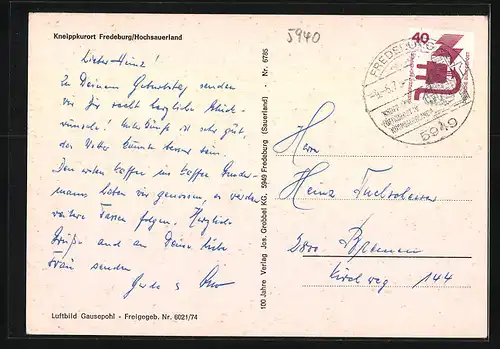 Kneippkurort Fredeburg/Hochsauerland
5940
Lieber Heinz!
Zu Deinem Geburtstag senden
wir Dir recht herzliche Glück-
wünsche! Unterkünfte ist sehr gut,
das Wetter könnte besser sein.
Den ersten Kaffee im Kaffee
haben wir genossen, es werden
weitere Tassen folgen. Herzliche
Grüße auch an Deine liebe
Frau senden
Luftbild Gausepohl - Freigegeb. Nr. 6021/74
100 Jahre Verlag Jos. Grobbel KG, 5949 Fredeburg (Sauerland) - Nr. 6785
40
FREDEBURG
5949
Herrn
Heinz
2800 Bremen
Kirchweg 144